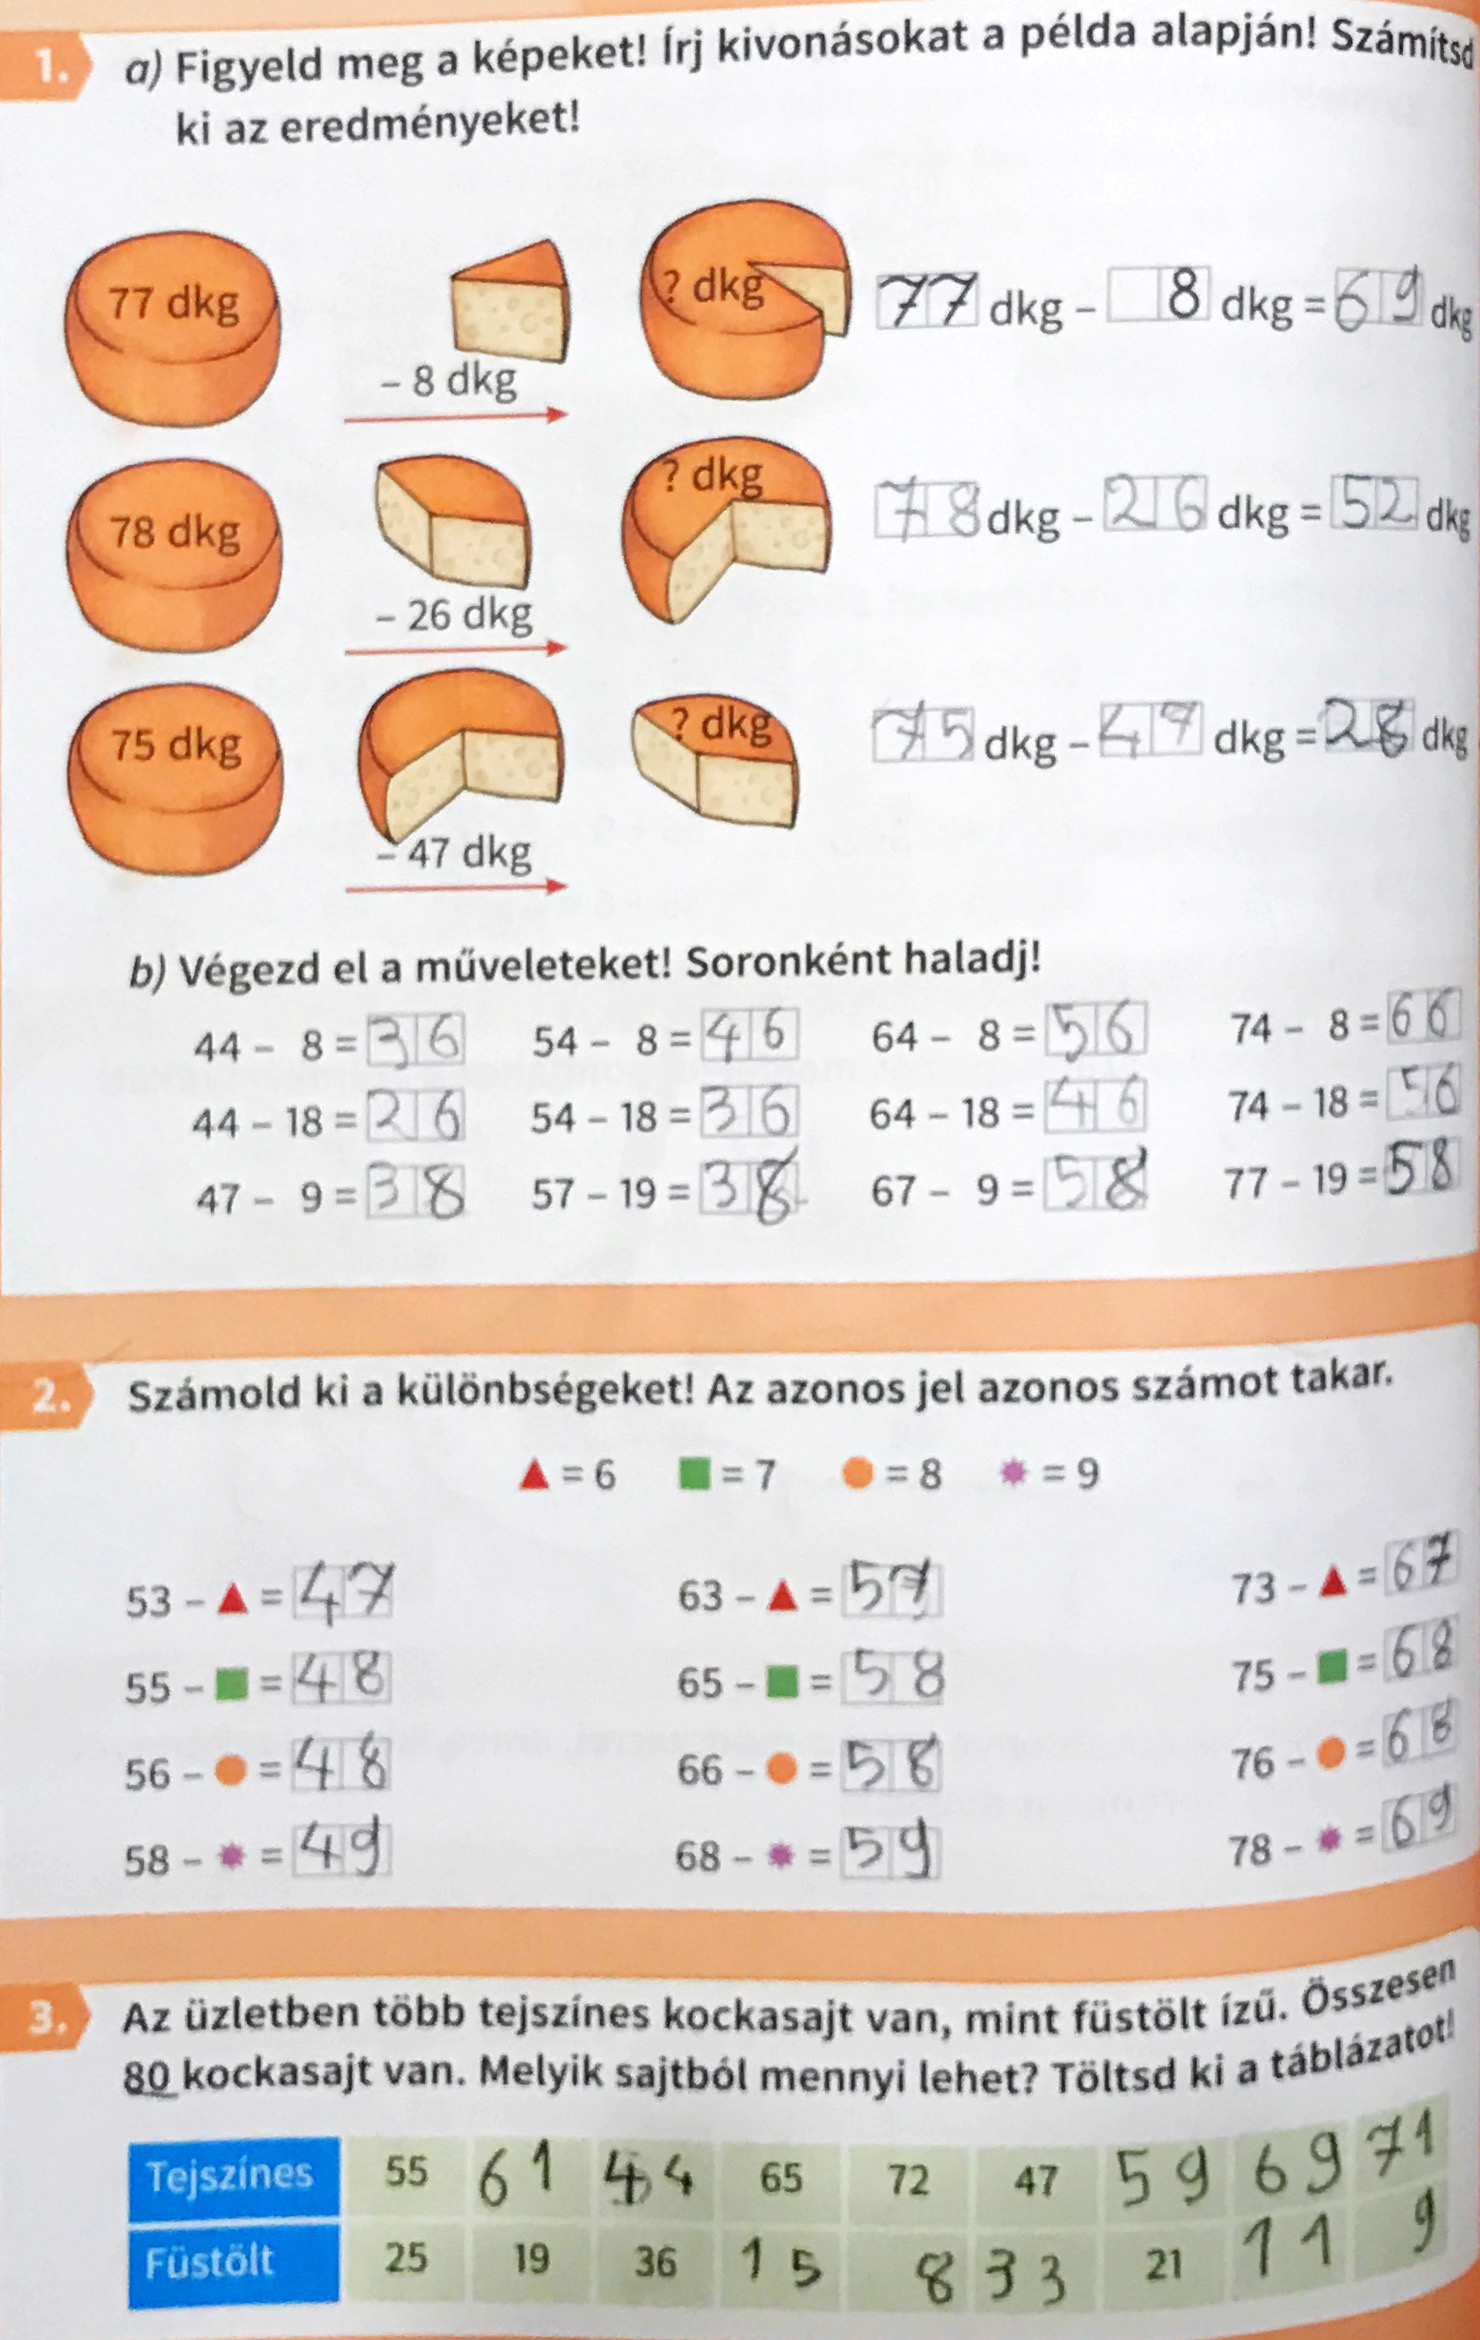 1. a) Figyeld meg a képeket! Írj kivonásokat a példa alapján! Számítsd
ki az eredményeket!
77 dkg – 8 dkg ? dkg 77 dkg – 8 dkg = 69 dkg
78 dkg – 26 dkg ? dkg 78 dkg – 26 dkg = 52 dkg
75 dkg – 47 dkg ? dkg 75 dkg – 47 dkg = 28 dkg
b) Végezd el a műveleteket! Soronként haladj!
44 – 8 = 36 54 – 8 = 46 64 – 8 = 56 74 – 8 = 66
44 – 18 = 26 54 – 18 = 36 64 – 18 = 46 74 – 18 = 56
47 – 9 = 38 57 – 19 = 38 67 – 9 = 58 77 – 19 = 58
2. Számold ki a különbségeket! Az azonos jel azonos számot takar.
▲ = 6 ■ = 7 ● = 8 ✹ = 9
53 – ▲ = 47 63 – ▲ = 57 73 – ▲ = 67
55 – ■ = 48 65 – ■ = 58 75 – ■ = 68
56 – ● = 48 66 – ● = 58 76 – ● = 68
58 – ✹ = 49 68 – ✹ = 59 78 – ✹ = 69
3. Az üzletben több tejszínes kockasajt van, mint füstölt ízű. Összesen
80 kockasajt van. Melyik sajtból mennyi lehet? Töltsd ki a táblázatot!
Tejszínes 55 61 44 65 72 47 59 69 71
Füstölt 25 19 36 15 8 33 21 11 9